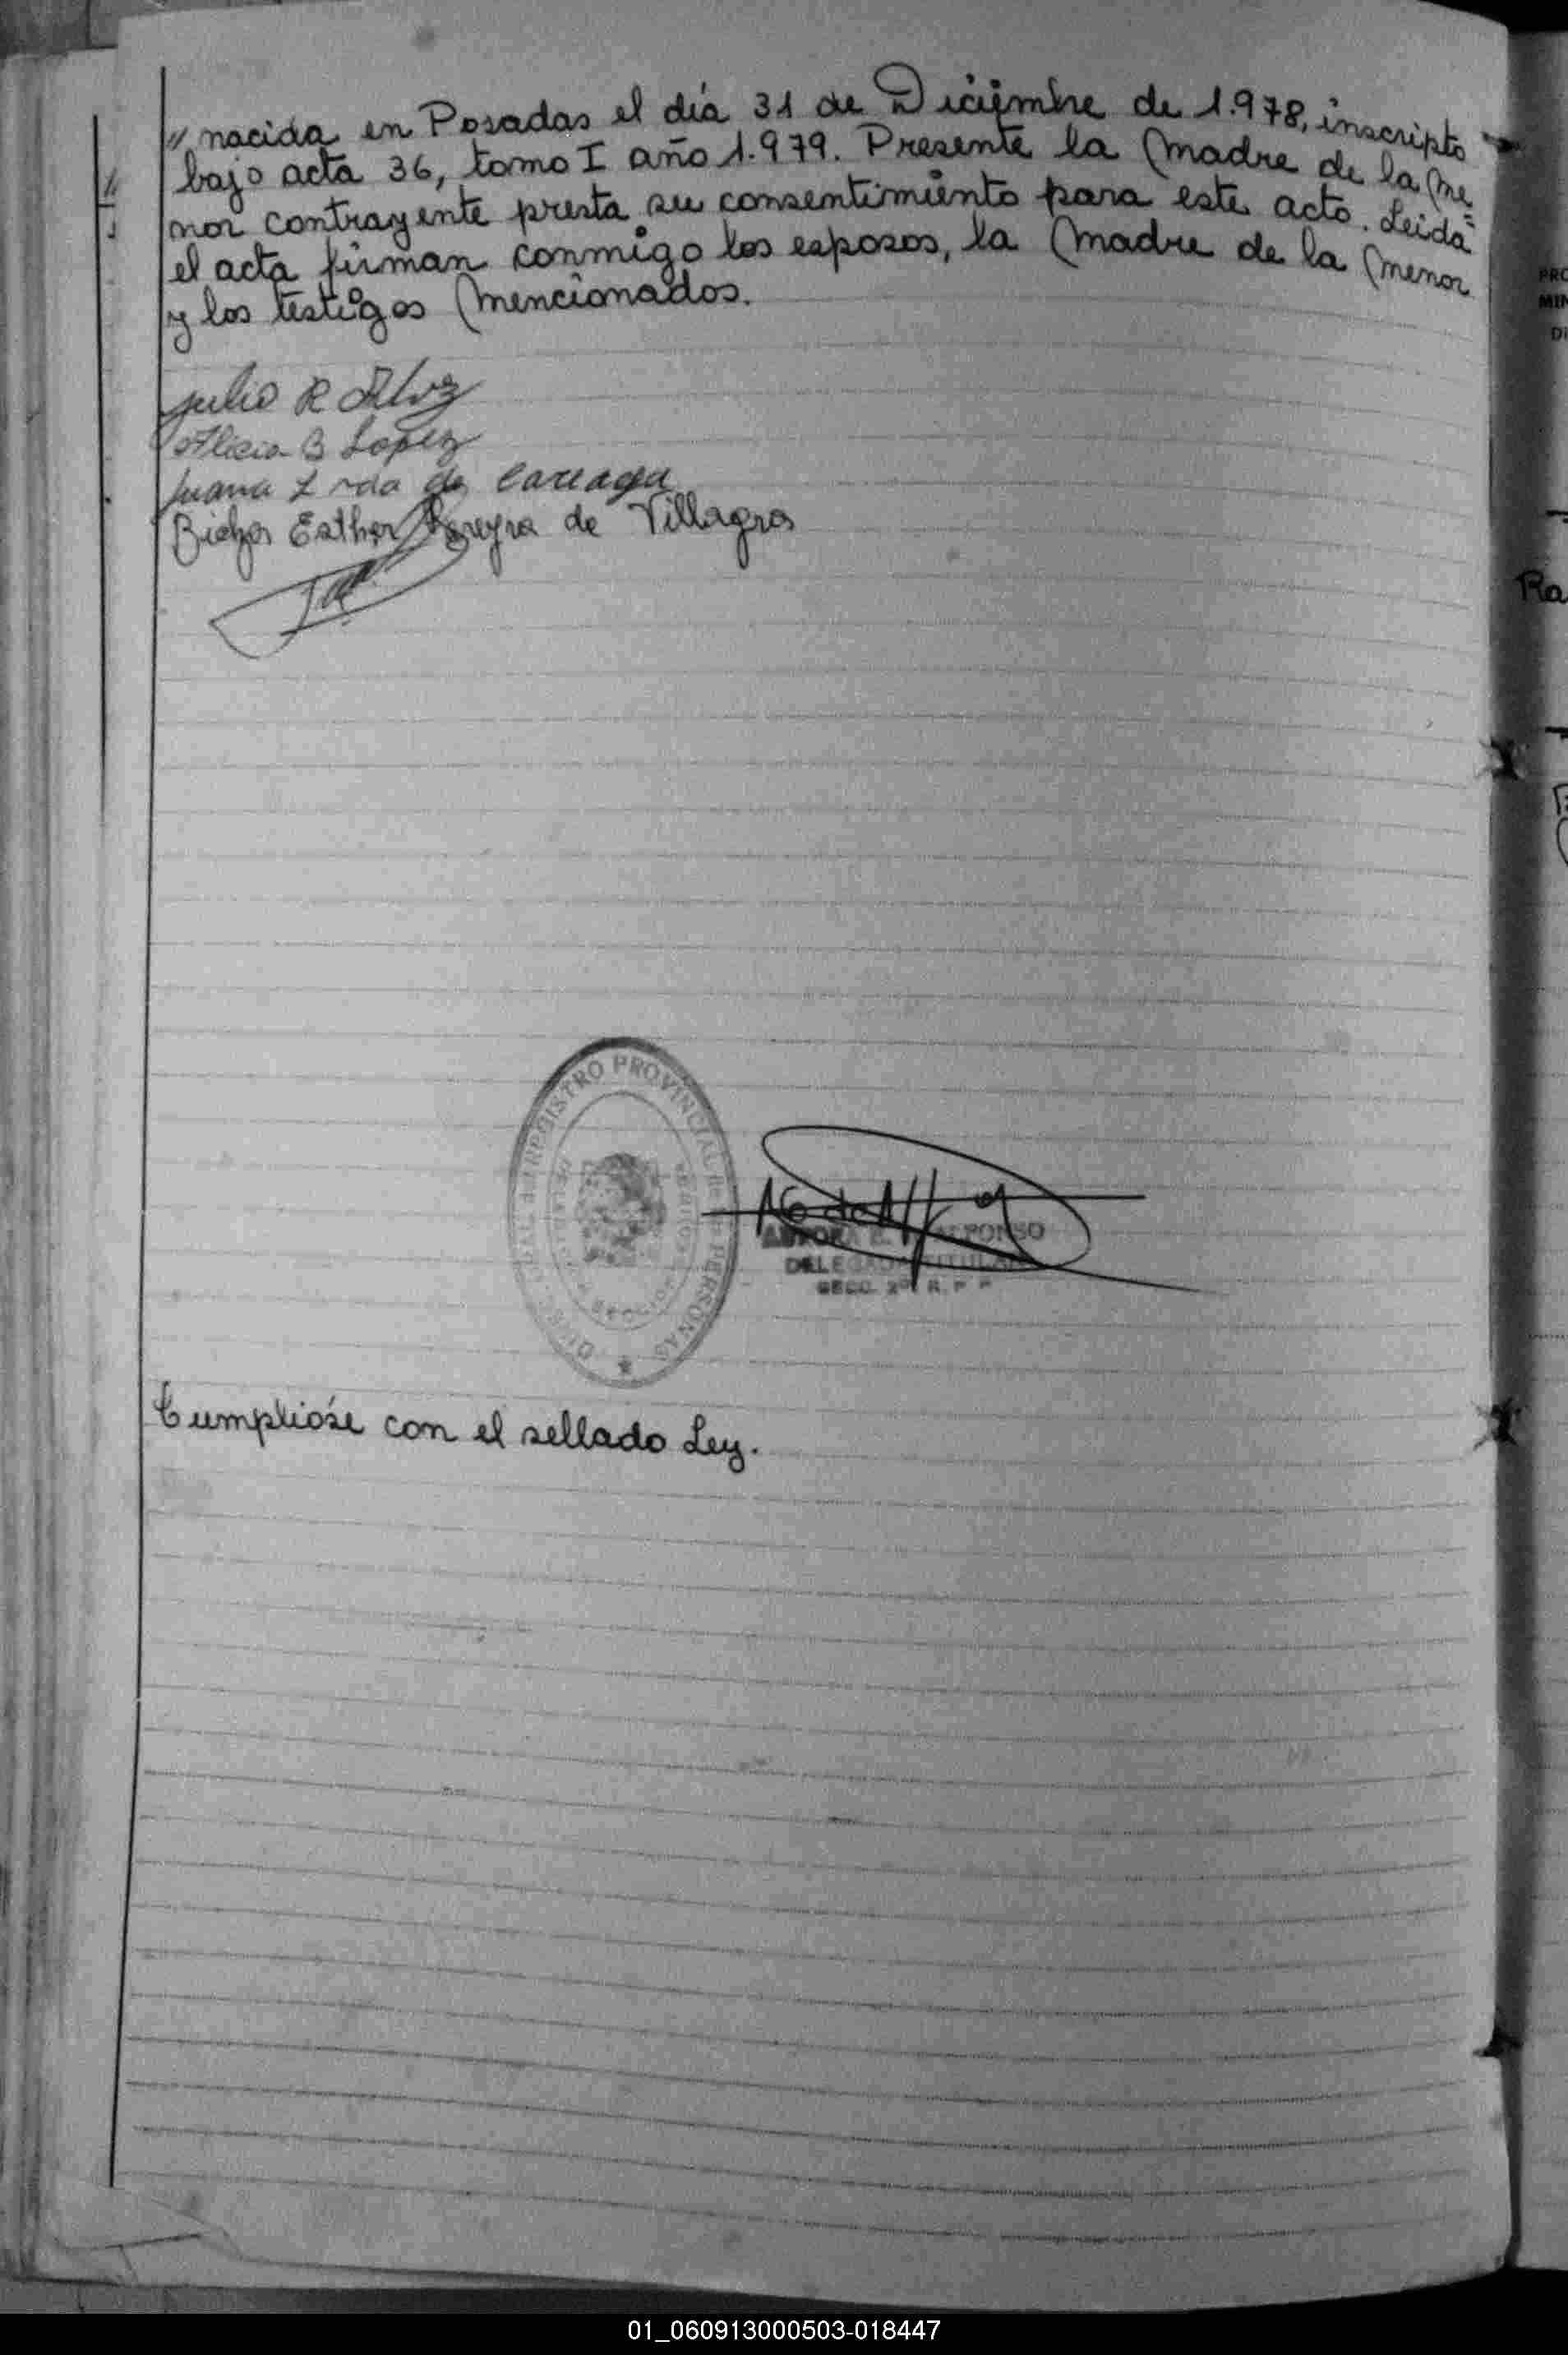 " nacida en Posadas el día 31 de Diciembre de 1.978, inscripto
bajo acta 36, tomo I año 1.979. Presente la madre de la me
nor contrayente presta su consentimiento para este acto. Leída
el acta firman conmigo los esposos, la madre de la menor
y los testigos mencionados.
Julio R
Alicia B Lopez
Juana de Careaga
Esther Pereyra de Villagra
REGISTRO PROVINCIAL DE LAS PERSONAS
ALFONSO
DELEGADA TITULAR
SECC. 2ª R. P. P
Cumplióse con el sellado Ley.
PRO
MIN
DI
Ra
01_060913000503-018447